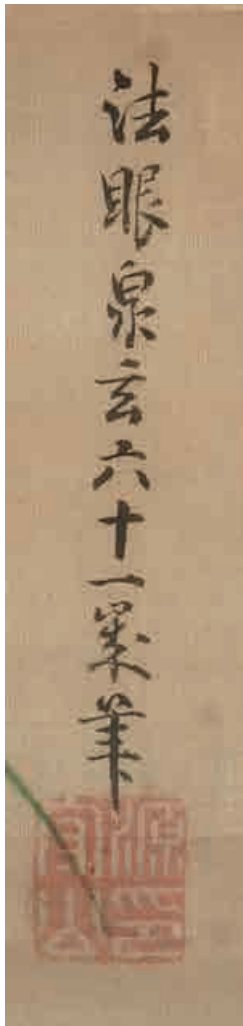 法眼泉玄六十一歳筆